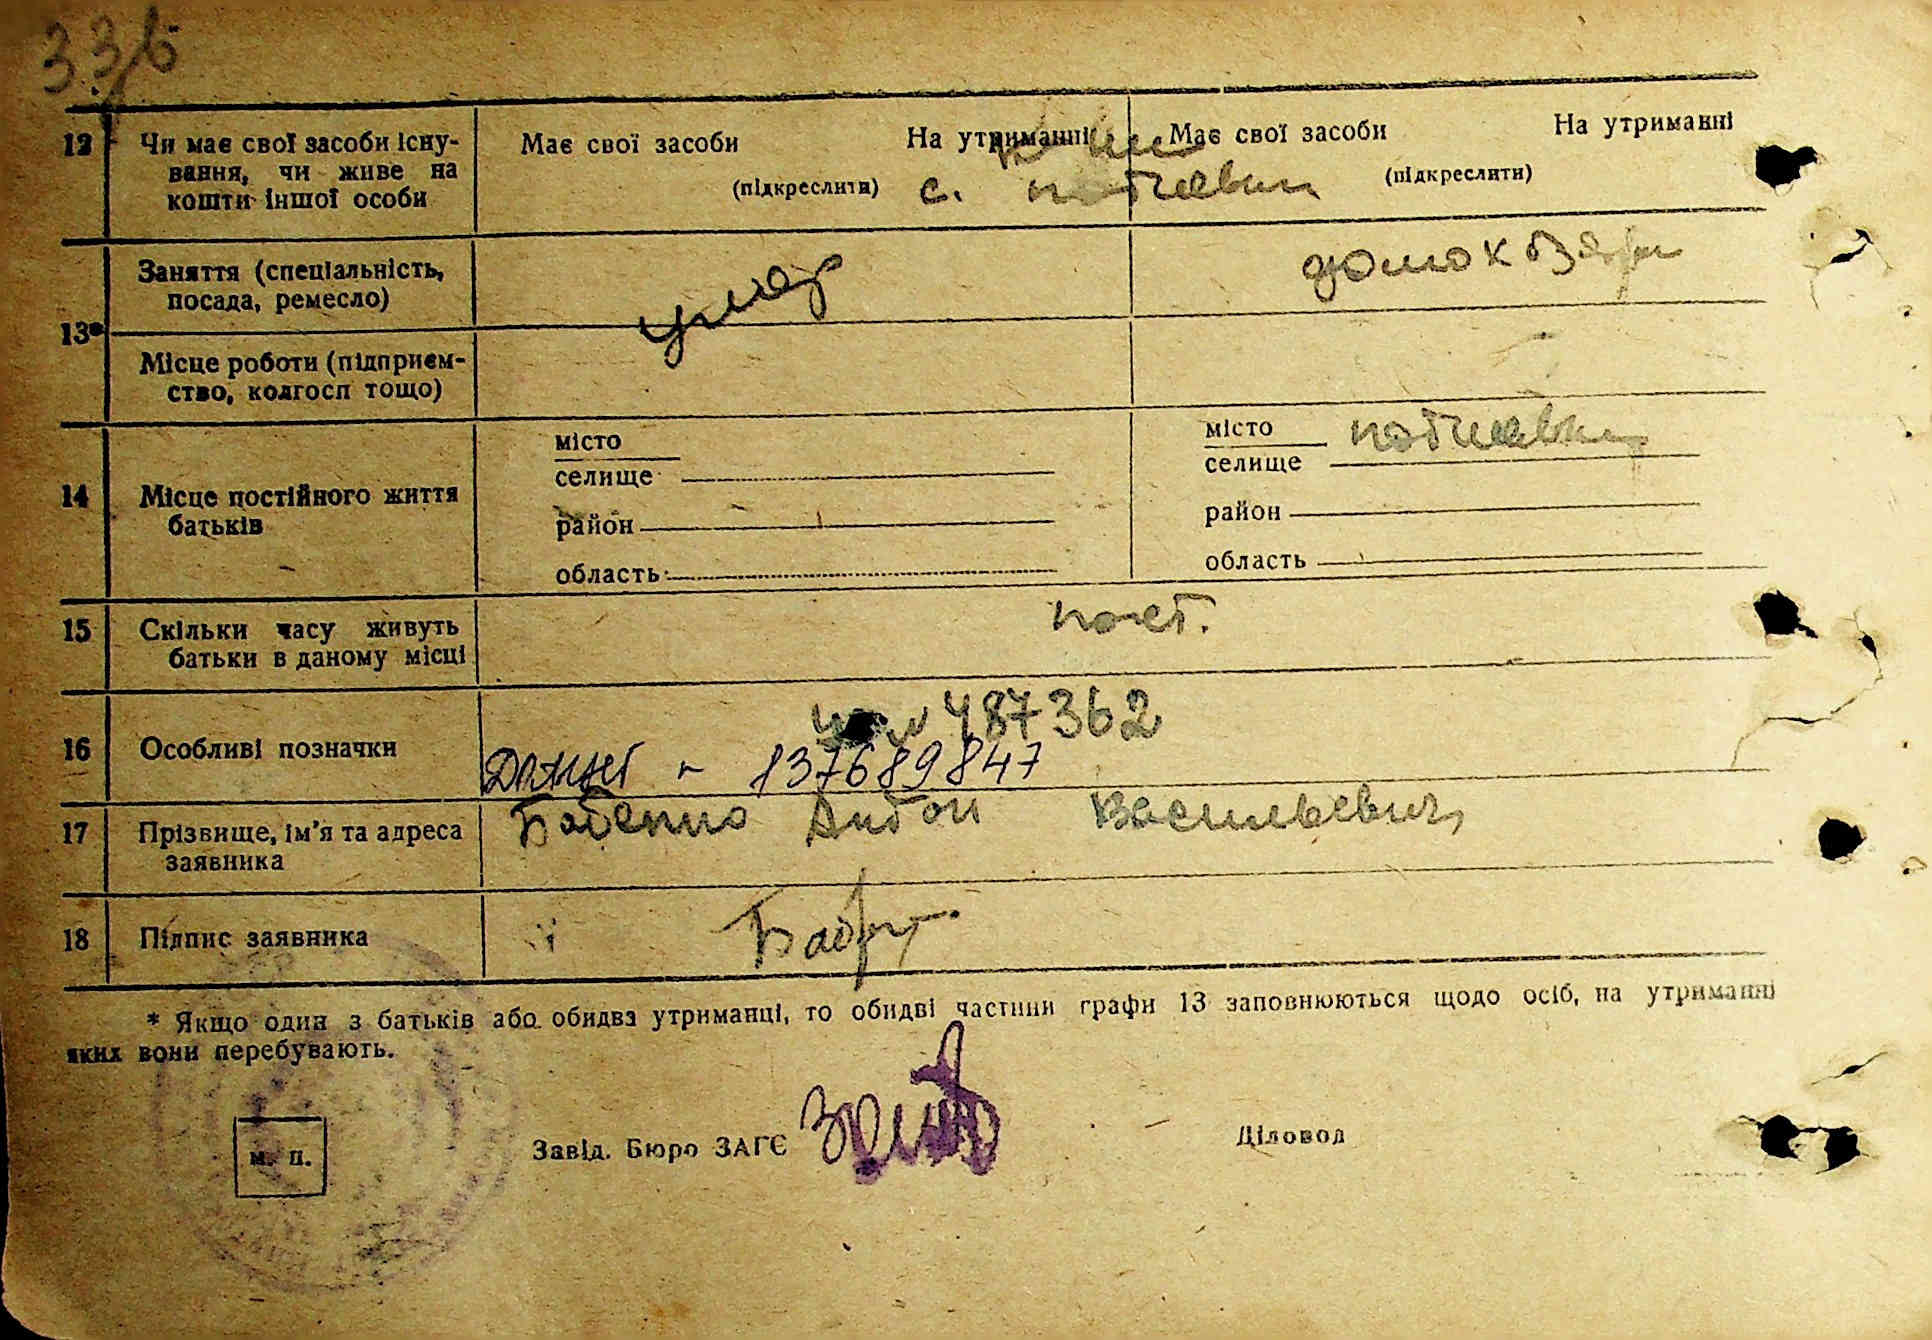 12 Чи має свої засоби існу-
вання, чи живе на
кошти іншої особи
Має свої засоби На утриманні
(підкреслити)
Має свої засоби На утриманні
(підкреслити)
с.
13* Заняття (спеціальність,
посада, ремесло)
умер
Місце роботи (підприєм-
ство, колгосп тощо)
14 Місце постійного життя
батьків
місто
селище
район
область
місто
селище
район
область
15 Скільки часу живуть
батьки в даному місці
пост.
16 Особливі позначки
487362
137689847
17 Прізвище, ім'я та адреса
заявника
Бабенко Антон Васильевич
18 Підпис заявника
* Якщо один з батьків або обидва утриманці, то обидві частини графи 13 заповнюються щодо осіб, на утриманні
яких вони перебувають.
м. п.
Завід. Бюро ЗАГС
Діловод